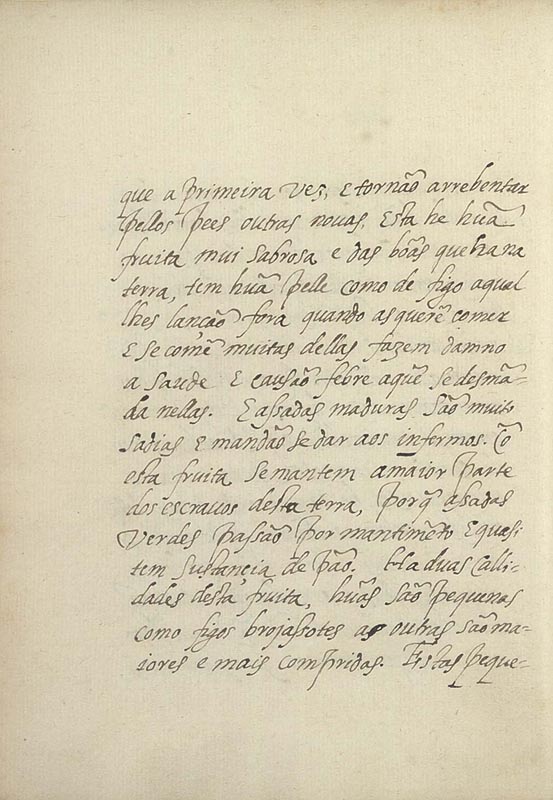 que a primeira vez, E tornão arrebentar
pellos pees outras nouas. Esta he hũa
fruita mui sabrosa e das bõas que ha na
terra, tem hũa pelle como de figo aqual
lhes lanção fora quando as querẽ comer
E se comẽ muitas dellas fazem damno
a saude E causão febre aquẽ se desmã-
da nellas. E assadas maduras são muito
sadias E mandão se dar aos infermos. Cõ
esta fruita se mantem a maior parte
dos escrauos desta terra, porq̃ assadas
verdes passão por mantimẽto E quasi
tem sustançia de pão. Ha duas calli-
dades desta fruita, hũas são pequenas
como figos brojassotes as outras são ma-
iores e mais compridas. Estas peque-